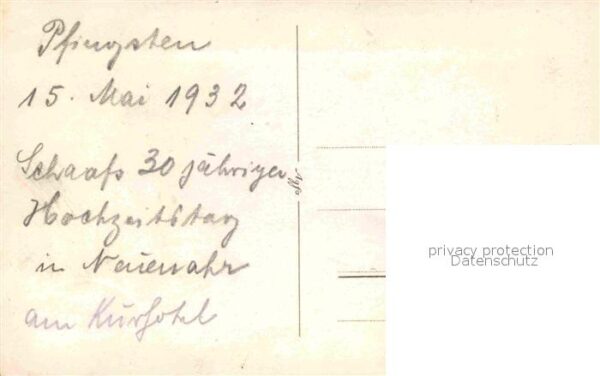 Pfingsten
15. Mai 1932
Schaafs 30 jähriger
Hochzeitstag
in Neuenahr
am Kurhotel
privacy protection
Datenschutz